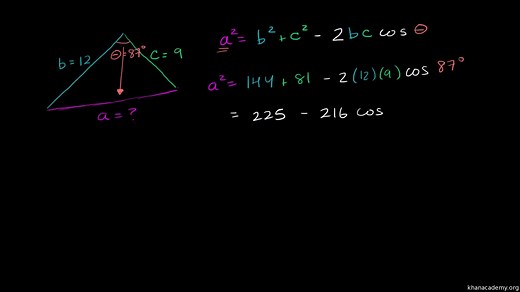 b = 12
θ = 87°
c = 9
a = ?
a² = b² + c² - 2bc cos θ
a² = 144 + 81 - 2(12)(9) cos 87°
= 225 - 216 cos
khanacademy.org